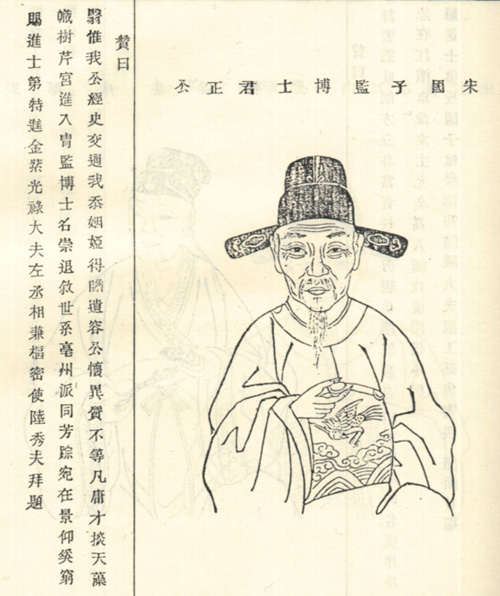 朱國子監博士君正公
贊曰
翳惟我公經史交通我忝姻婭得瞻遺容公懷異質不等凡庸才掞天藻
幟樹芹宮進入胄監博士名崇退敘世系亳州派同芳踪宛在景仰奚窮
賜進士第特進金紫光祿大夫左丞相兼樞密使陸秀夫拜題